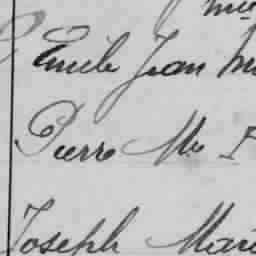 Emile Jean
Pierre Me
Joseph Mari